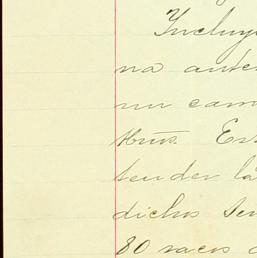 Incluy
na ante
un cam
Es
tender la
dichos ser
80 sacos